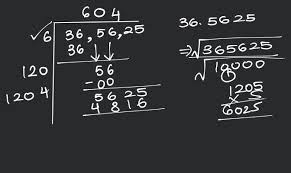 604
✓6 36,56,25
36 ↓↓
120 56
-00
1204 56 25
4816
36.5625
⇒ √365625
√10000
1205
× 5
6025